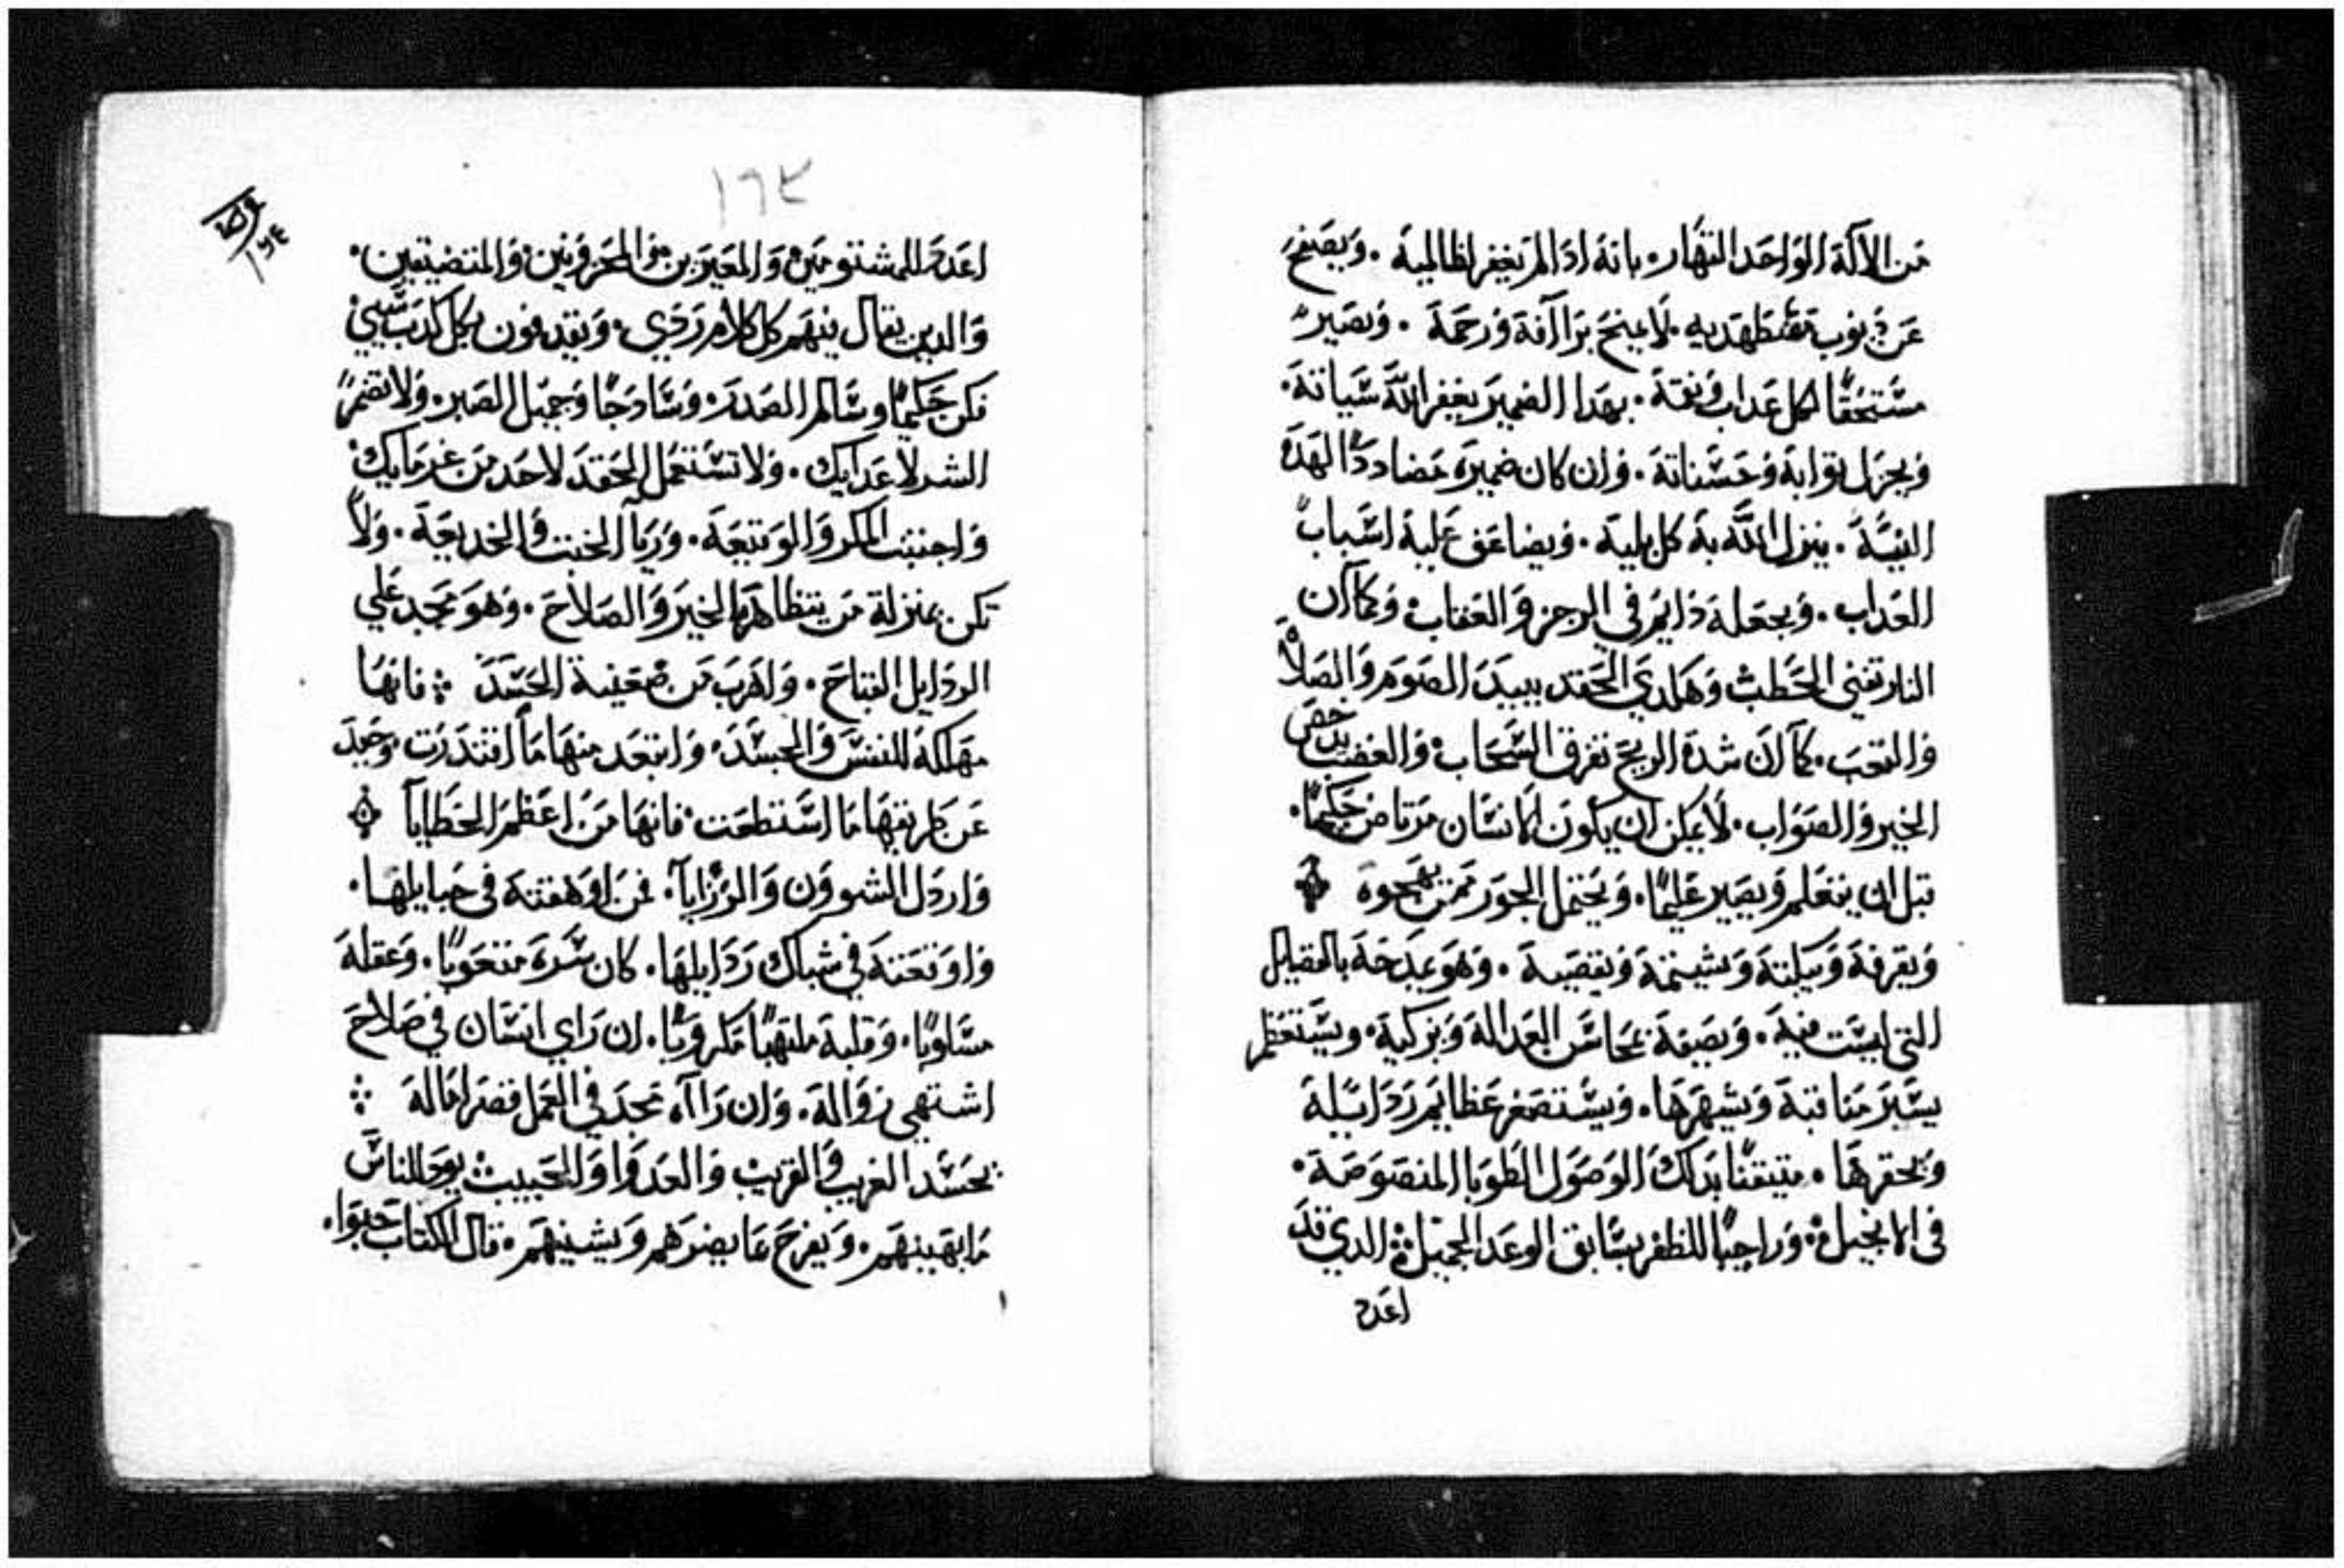 من الالة الواحد القهار. بانه ادا لم يغفر لظالمية. ويصفح
عن دنوب مضطهديه. لا يمنح برأفة ورحمة. ويصير
مستحقا لكل عداب ونقمة. بهدا الضمير يغفر الله سياته.
ويجزل توابة وحسناتة. وان كان ضميره مضاددا لهده
النية. ينزل الله به كل بلية. ويضاعف علية اسباب
العداب. ويجعلة دايم في الرجز والعقاب. وكما ان
النار تفني الحطب وهكدي الحقد يبيد الصوم والصلاه
والتعب. كما ان شدة الريح تفرق السحاب. والغضب يدحض
الخير والصواب. لا يمكن ان يكون الانسان مرتاض حكيما.
قبل ان يتعلم ويصير عليما. ويحتمل الجور ممن يهجوه
ويقرفة ويبكتة ويشتمة ويقصية. وهو يمدحة بالفضايل
التى ليست فية. ويصفة بمحاسن العدالة ويزكية. ويستعظم
يسير مناقبة ويشهرها. ويستصغر عظايم ردايلة
ويحقرها. متيقنا بدلك الوصول لطوبا المنصوصة.
فى الانجيل. وراجيا للظفر بسابق الوعد الجميل. الدي قد
اعد
١٦٣
اعد للمشتومين والمعيرين والمحزونين والمتضيقين.
والدين يقال فيهم كل كلام ردي. ويقدفون بكل كدب شي
فكن حكيما وسالم الصدر. وسادجا وجميل الصبر. ولا تضمر
الشر لاعدايك. ولا تستعمل الحقد لاحد من غرمايك
واجتنب المكر والوقيعة. وريا الخبث والخديعة. ولا
تكن بمنزلة من يتظاهر بالخير والصلاح. وهو مجد علي
الردايل القباح. واهرب من ضغينة الحسد فانها
مهلكة للنفس والجسد. وابتعد منها ما اقتدرت. وحيد
عن طريقها ما استطعت. فانها من اعظم الخطايا
واردل الشوون والرزايا. فمن اوهقته فى حبايلها.
واوقعتة في شباك ردايلها. كان سره متعوبا. وعقلة
مسلوبا. وقلبة ملتهبا مكروبا. ان راي انسان في صلاح
اشتهي زواله. وان رااه مجد في العمل قصر امالة
يحسد الغريب والقريب والعدوا والحبيب. يود للناس
ما يهينهم. ويفرح بما يضرهم ويشينهم. قال الكتاب حبوا.